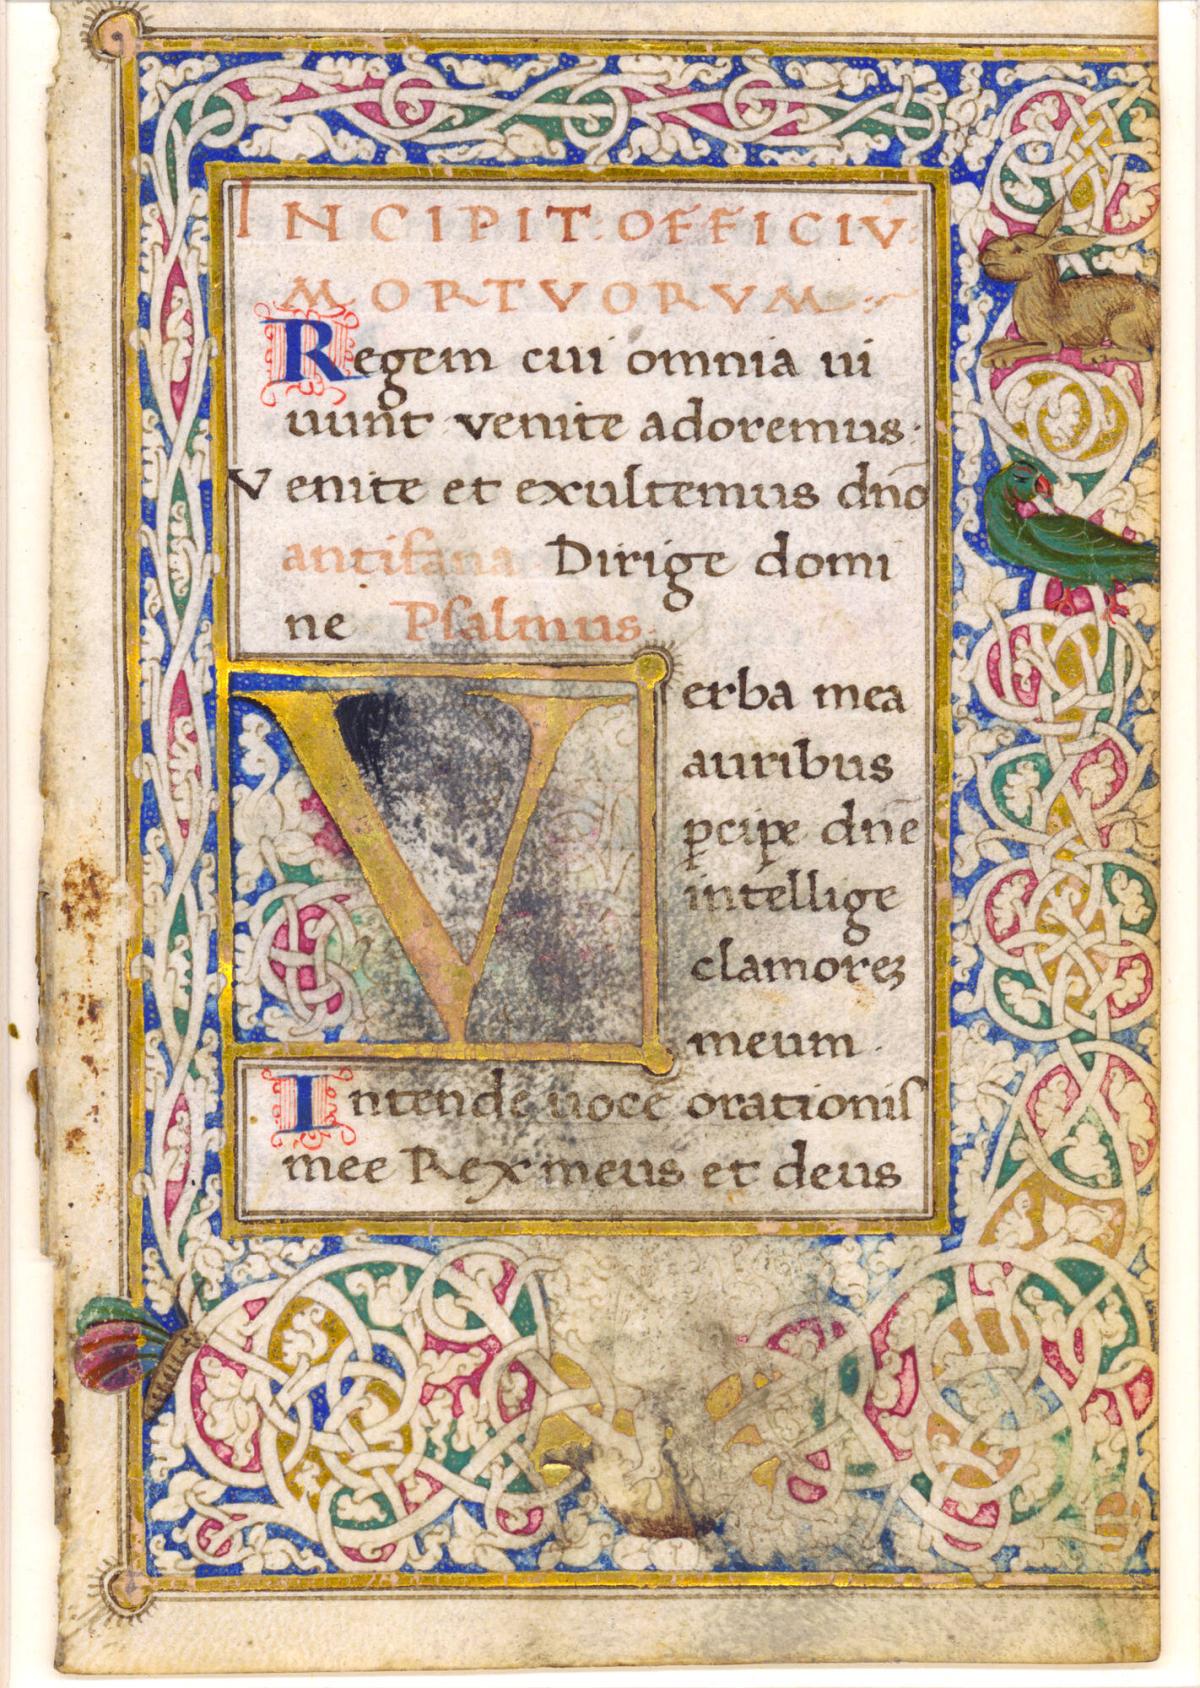 INCIPIT·OFFICIŪ·
MORTVORVM
Regem cui omnia ui
uunt venite adoremus·
Venite et exultemus dnō
antifana Dirige domi
ne Psalmus.
Verba mea
auribus
ꝑcipe dnē
intellige
clamoreꝫ
meum·
Intende uoce orationiſ
mee Rex meus et deus